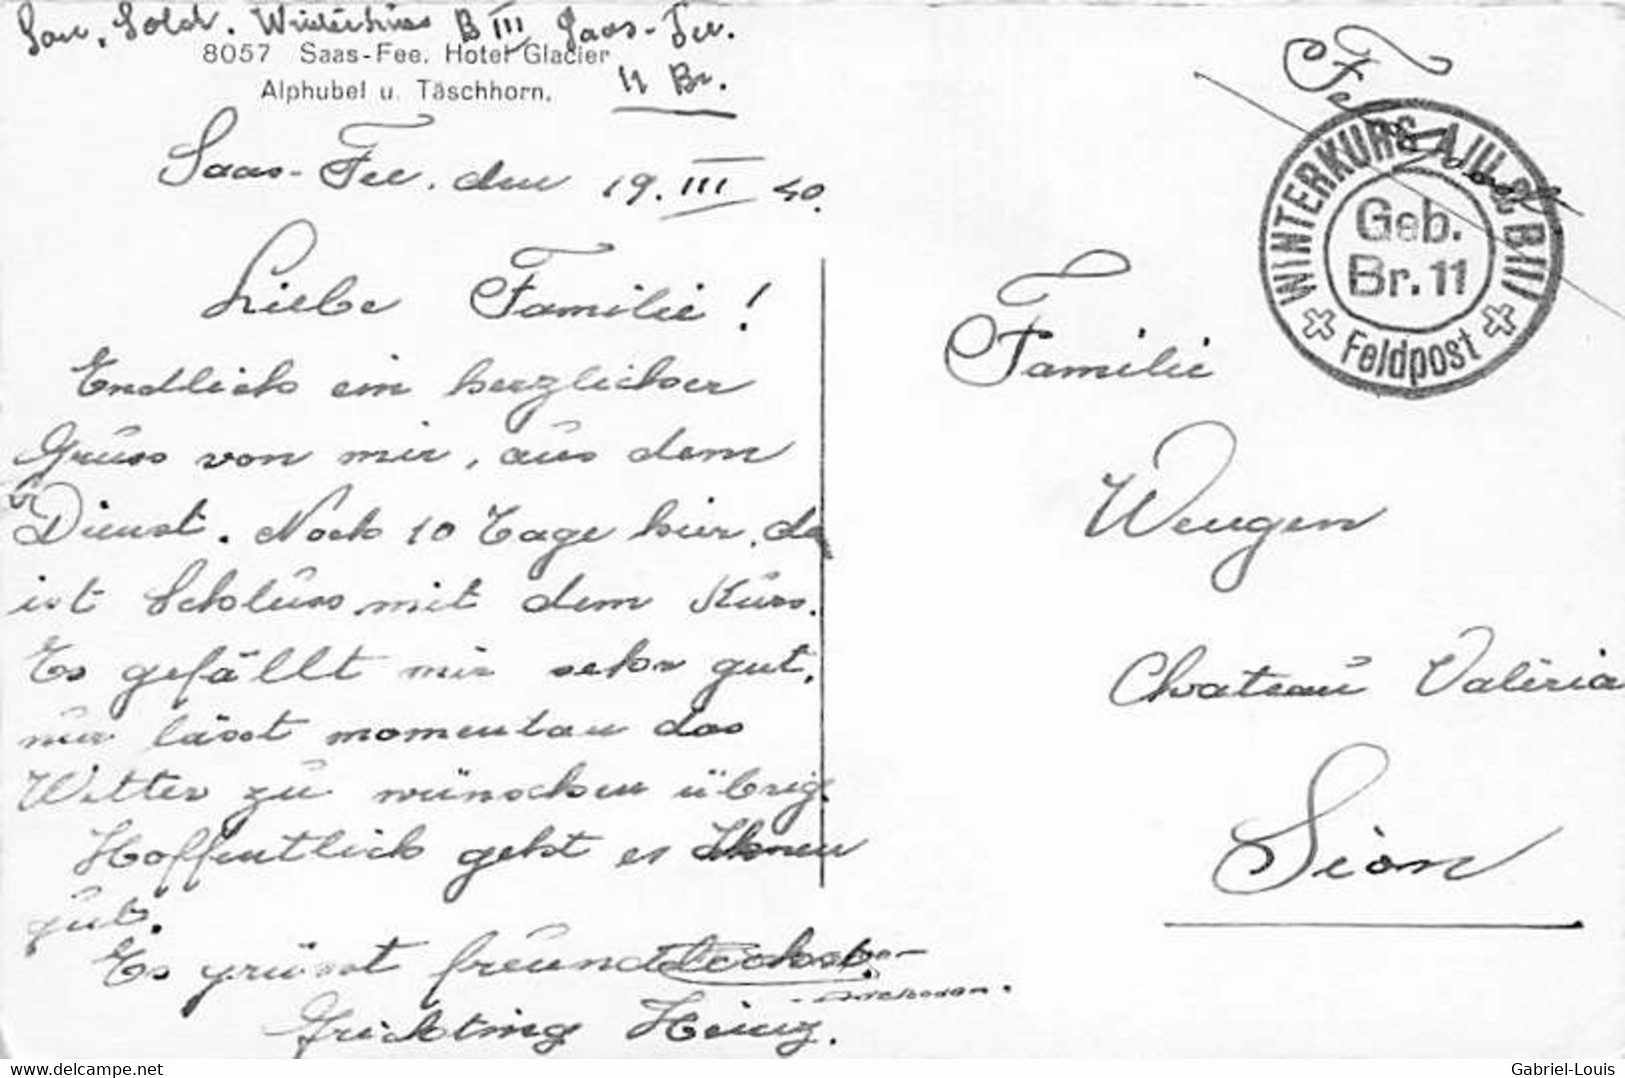 San. Sold. Winterkurs B III Saas-Fee.
8057 Saas-Fee. Hotel Glacier
Alphubel u. Täschhorn.
11 Br.
Saas-Fee. den 19. III 40.
Liebe Familie!
Endlich ein herzlicher
Gruss von mir, aus dem
Dienst. Noch 10 Tage hier, da
ist Schluss mit dem Kurs.
Es gefällt mir sehr gut,
nur lässt momentan das
Wetter zu wünschen übrig.
Hoffentlich geht es Ihnen
gut.
Es grüsst freundlichst
Heinz.
Feldpost
WINTERKURS A III & B III
Geb.
Br. 11
Feldpost
Familie
Wengen
Chateau Valéria
Sion
delcampe.net
Gabriel-Louis